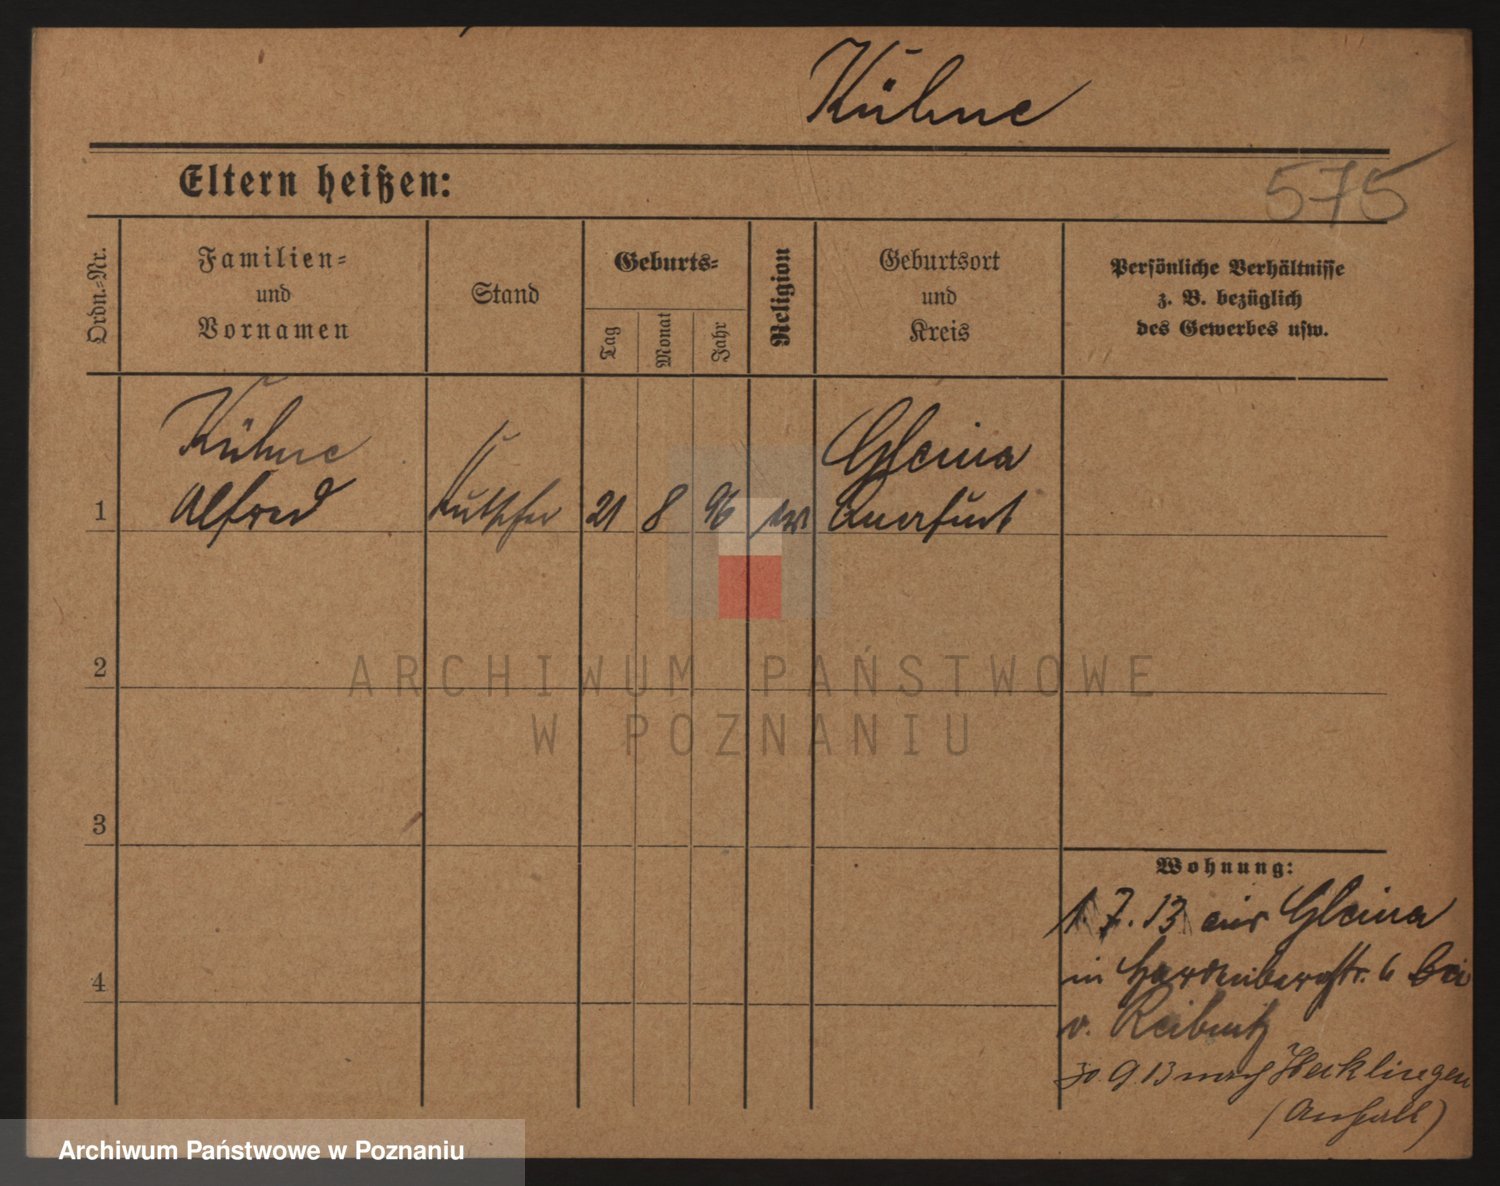 Kühne
Eltern heißen:
575
Ordn.-Nr.
Familien-
und
Vornamen
Stand
Geburts-
Tag
Monat
Jahr
Religion
Geburtsort
und
Kreis
Persönliche Verhältnisse
z. B. bezüglich
des Gewerbes usw.
Kühne
Gleina
1
Alfred
Kutscher
21
8
96
ev
Querfurt
2
ARCHIWUM PAŃSTWOWE
W POZNANIU
3
Wohnung:
1. 7. 13 aus Gleina
in Hardenbergstr. 6 bei
4
v. Reibnitz
30. 9 13 nach Hecklingen
(Anhalt)
Archiwum Państwowe w Poznaniu